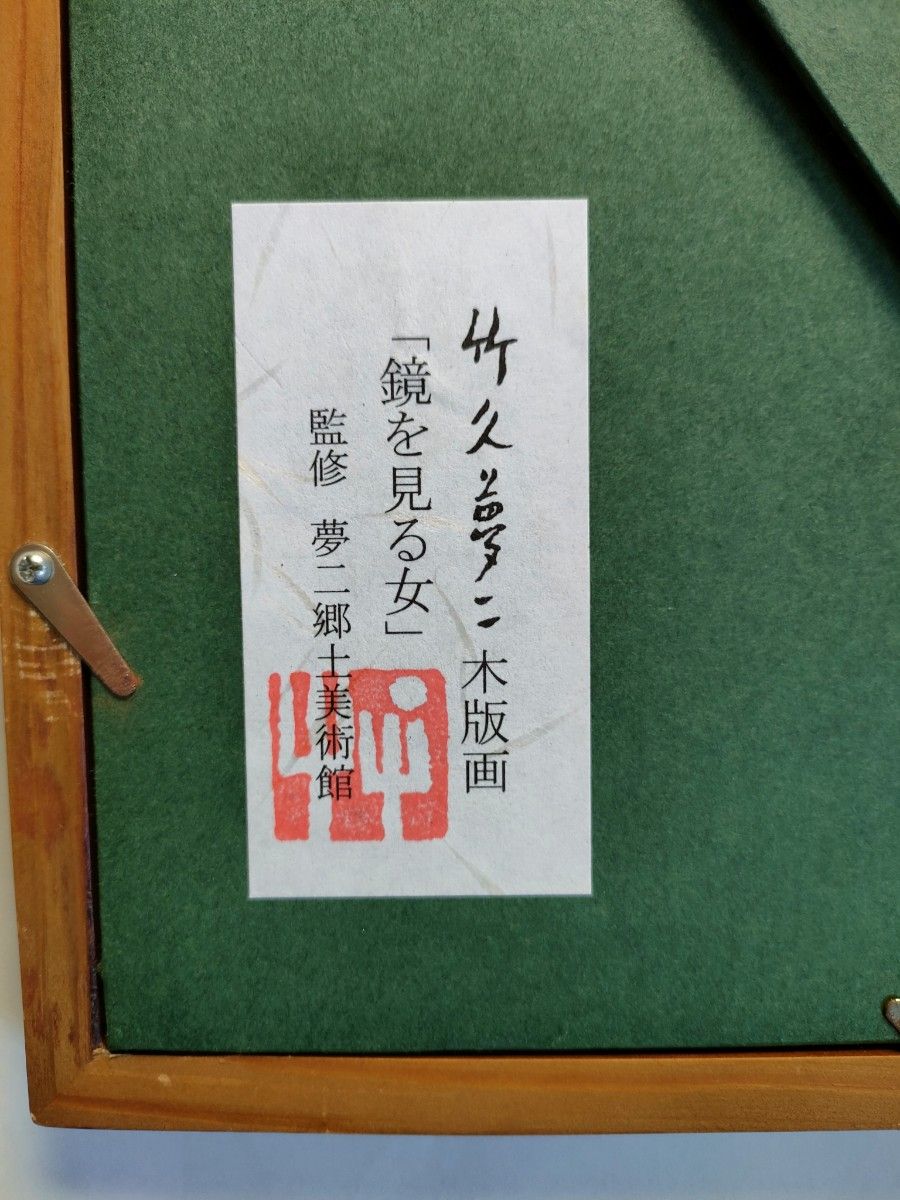 竹久夢二 木版画
「鏡を見る女」
監修 夢二郷土美術館